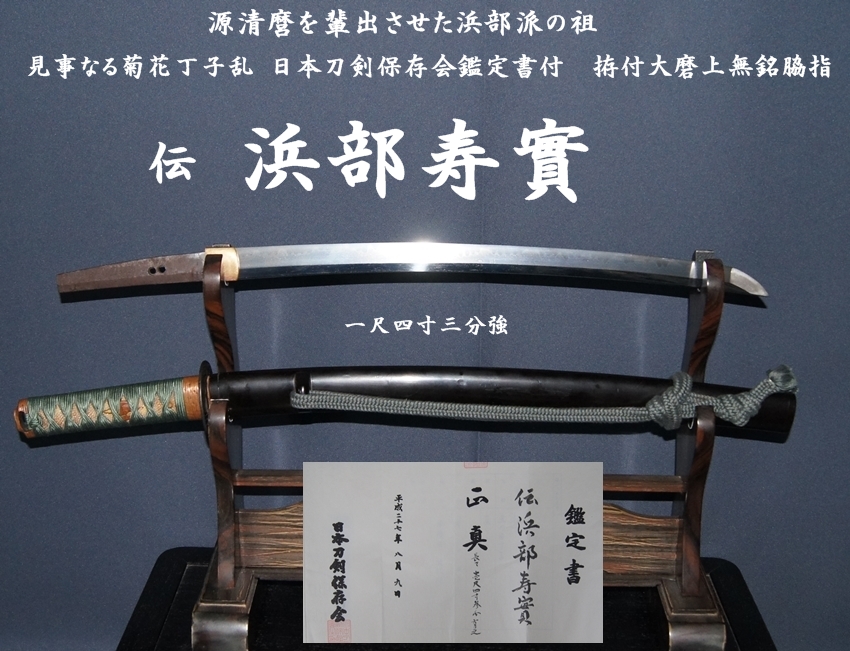 源清麿を輩出させた浜部派の祖
見事なる菊花丁子乱 日本刀剣保存会鑑定書付 拵付大磨上無銘脇指
伝 浜部寿實
一尺四寸三分強
鑑定書
伝浜部寿實
正真
平成二十七年 八月九日
日本刀剣保存会